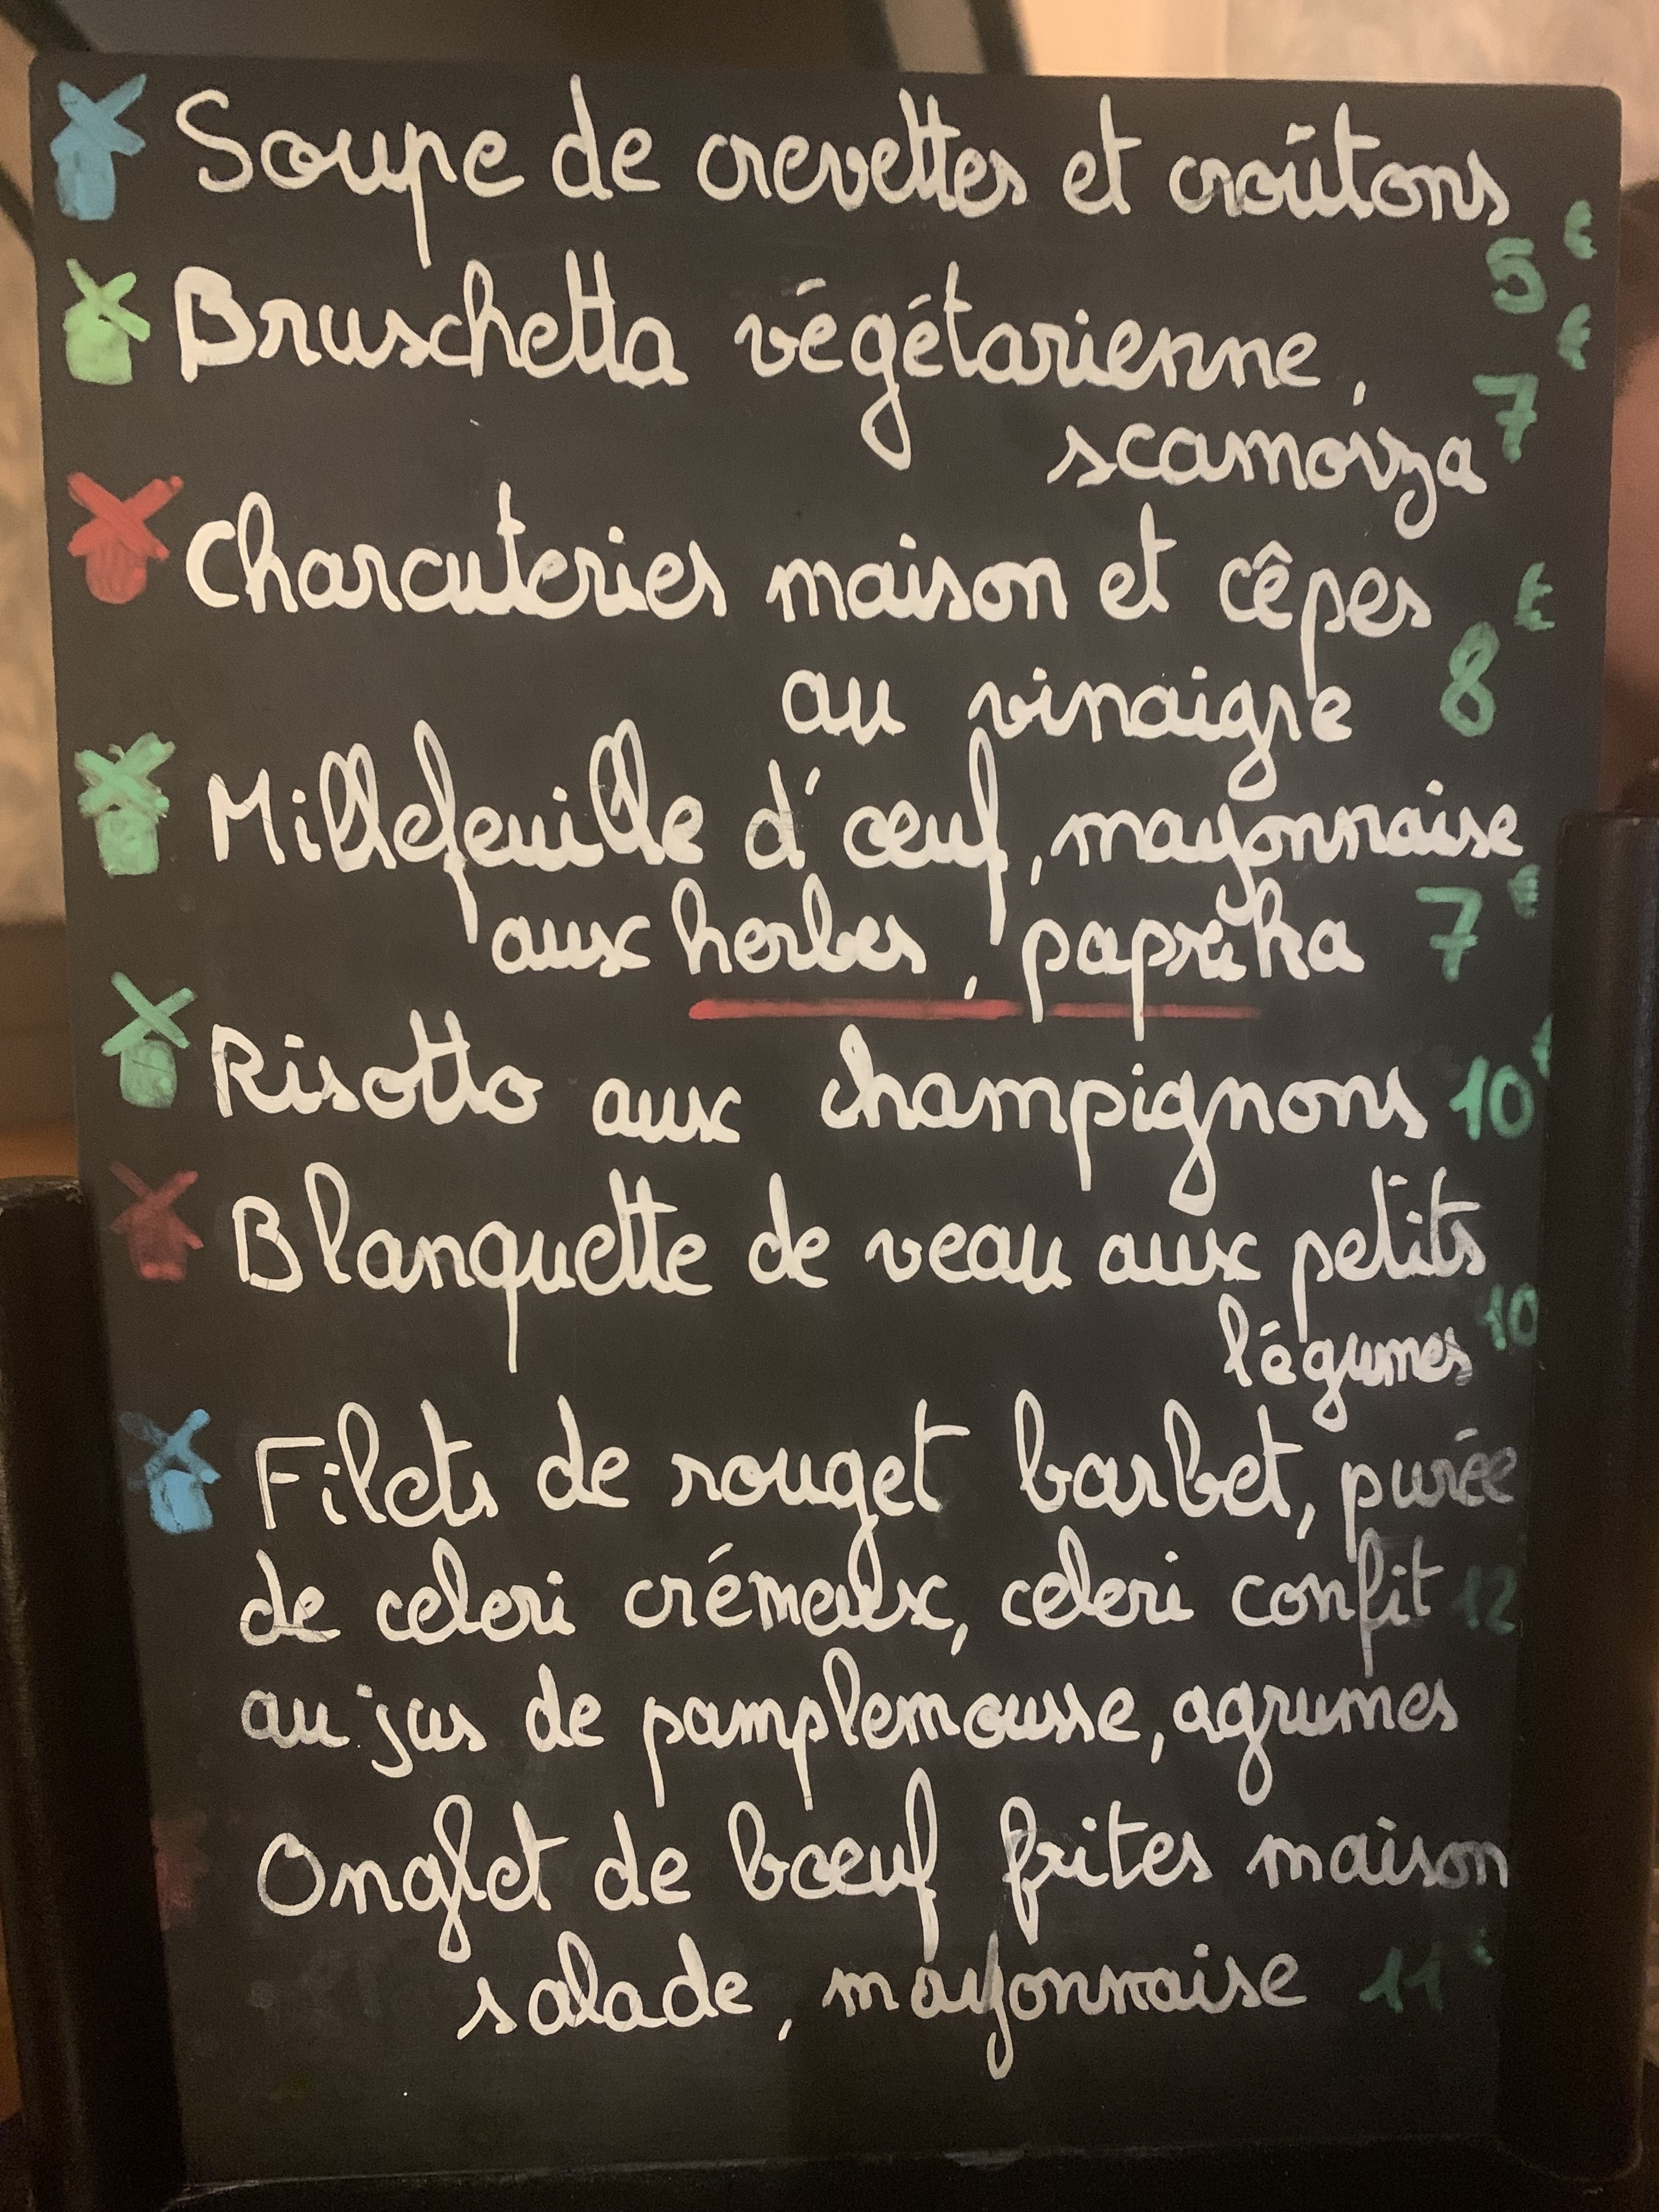 Soupe de crevettes et croûtons
5 €
Bruschetta végétarienne,
scamorza 7 €
Charcuteries maison et cêpes
au vinaigre 8 €
Millefeuille d'œuf, mayonnaise
aux herbes, paprika 7 €
Risotto aux champignons 10 €
Blanquette de veau aux petits
légumes 10
Filets de rouget barbet, purée
de celeri crémeux, celeri confit 12
au jus de pamplemousse, agrumes
Onglet de bœuf frites maison
salade, mayonnaise 11 €